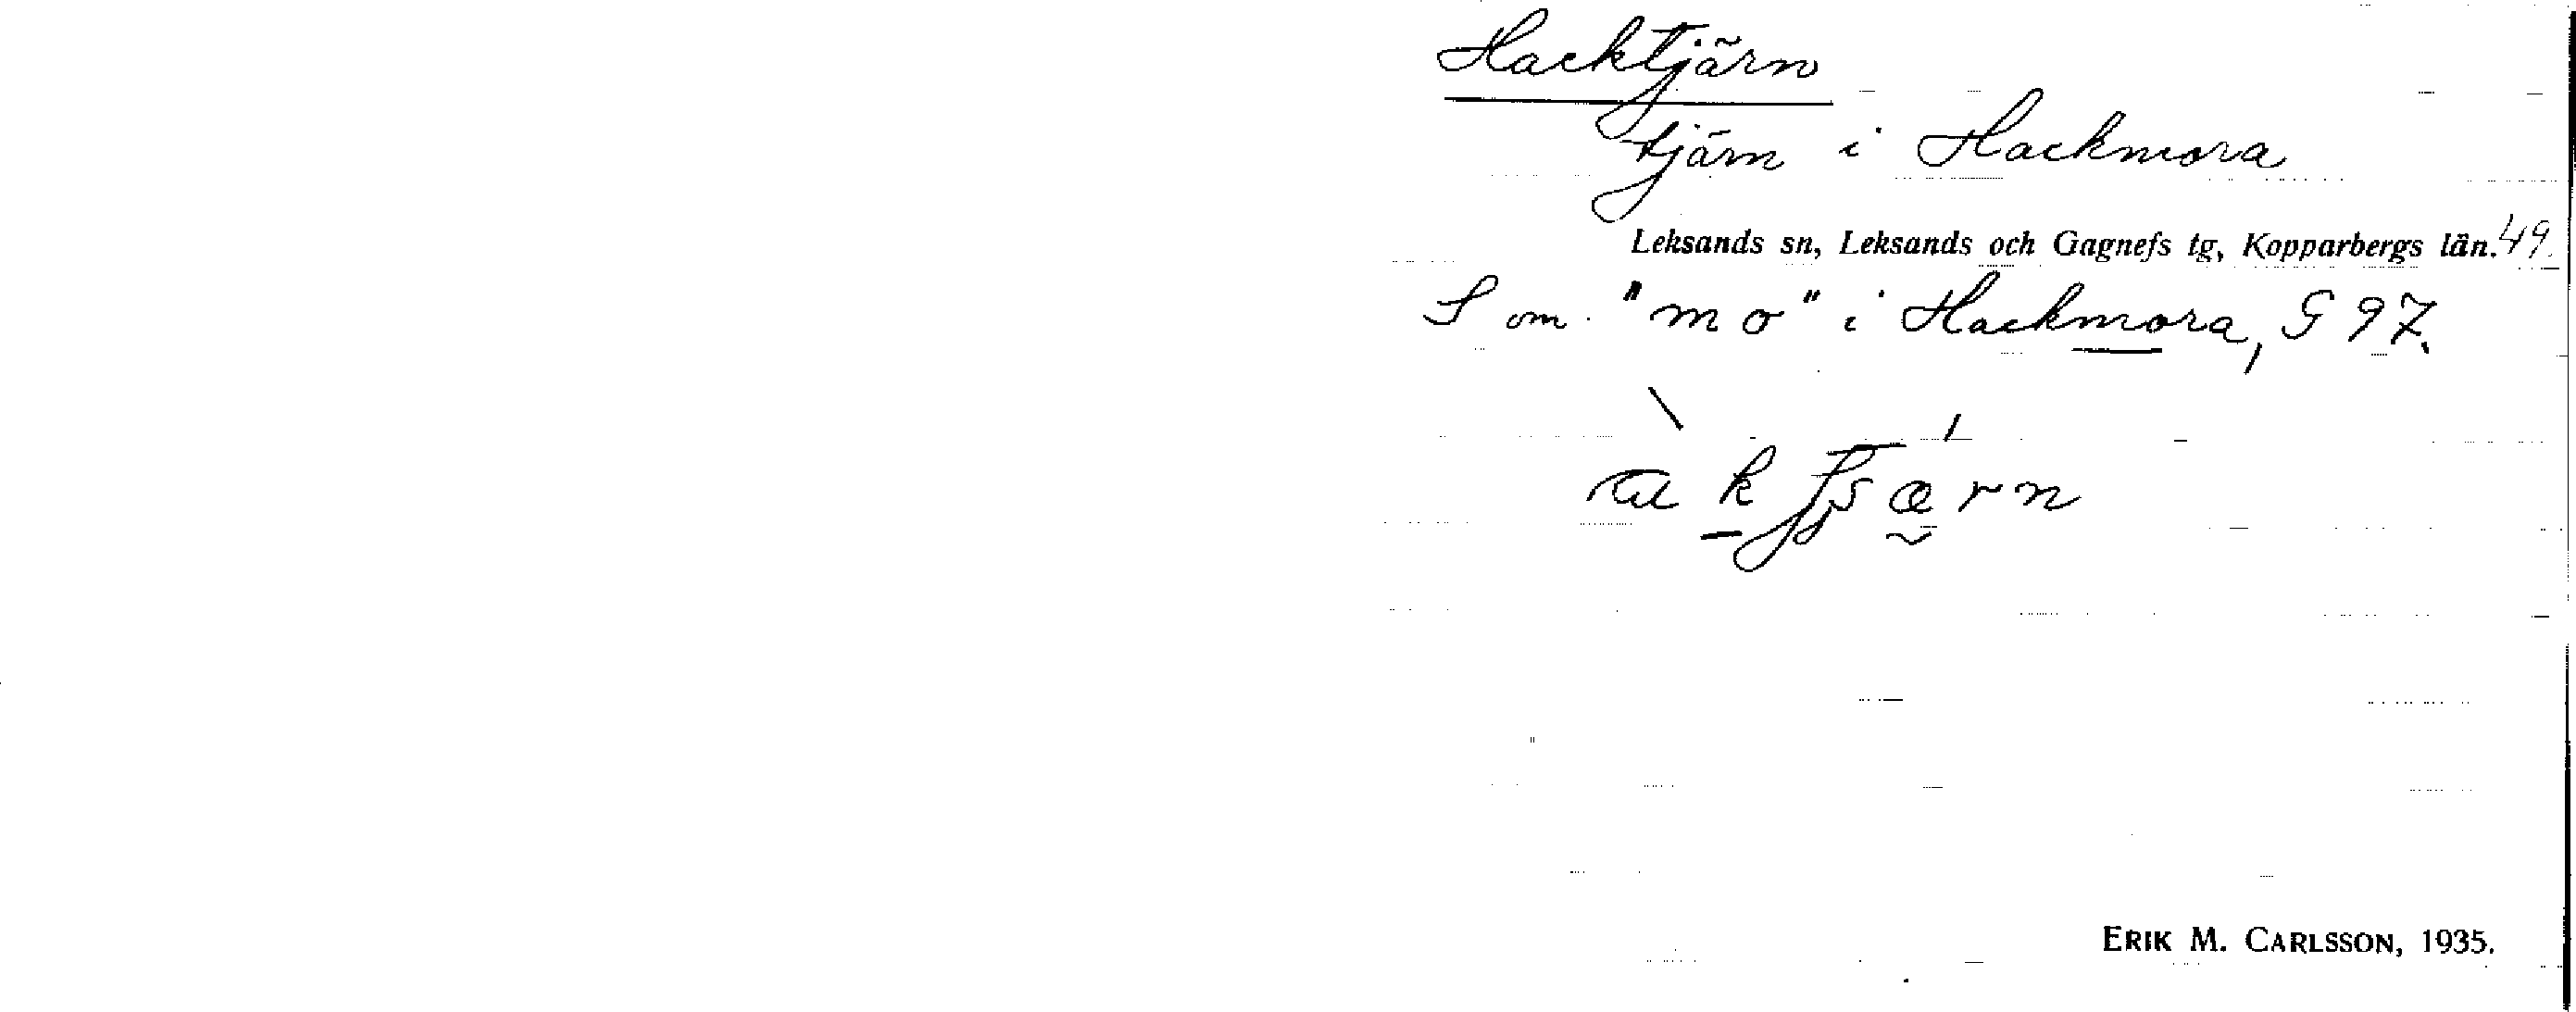 Hacktjärn
tjärn i Hackmora
Leksands sn, Leksands och Gagnefs tg, Kopparbergs län. 49.
S om "mo" i Hackmora, G 97.
ERIK M. CARLSSON, 1935.